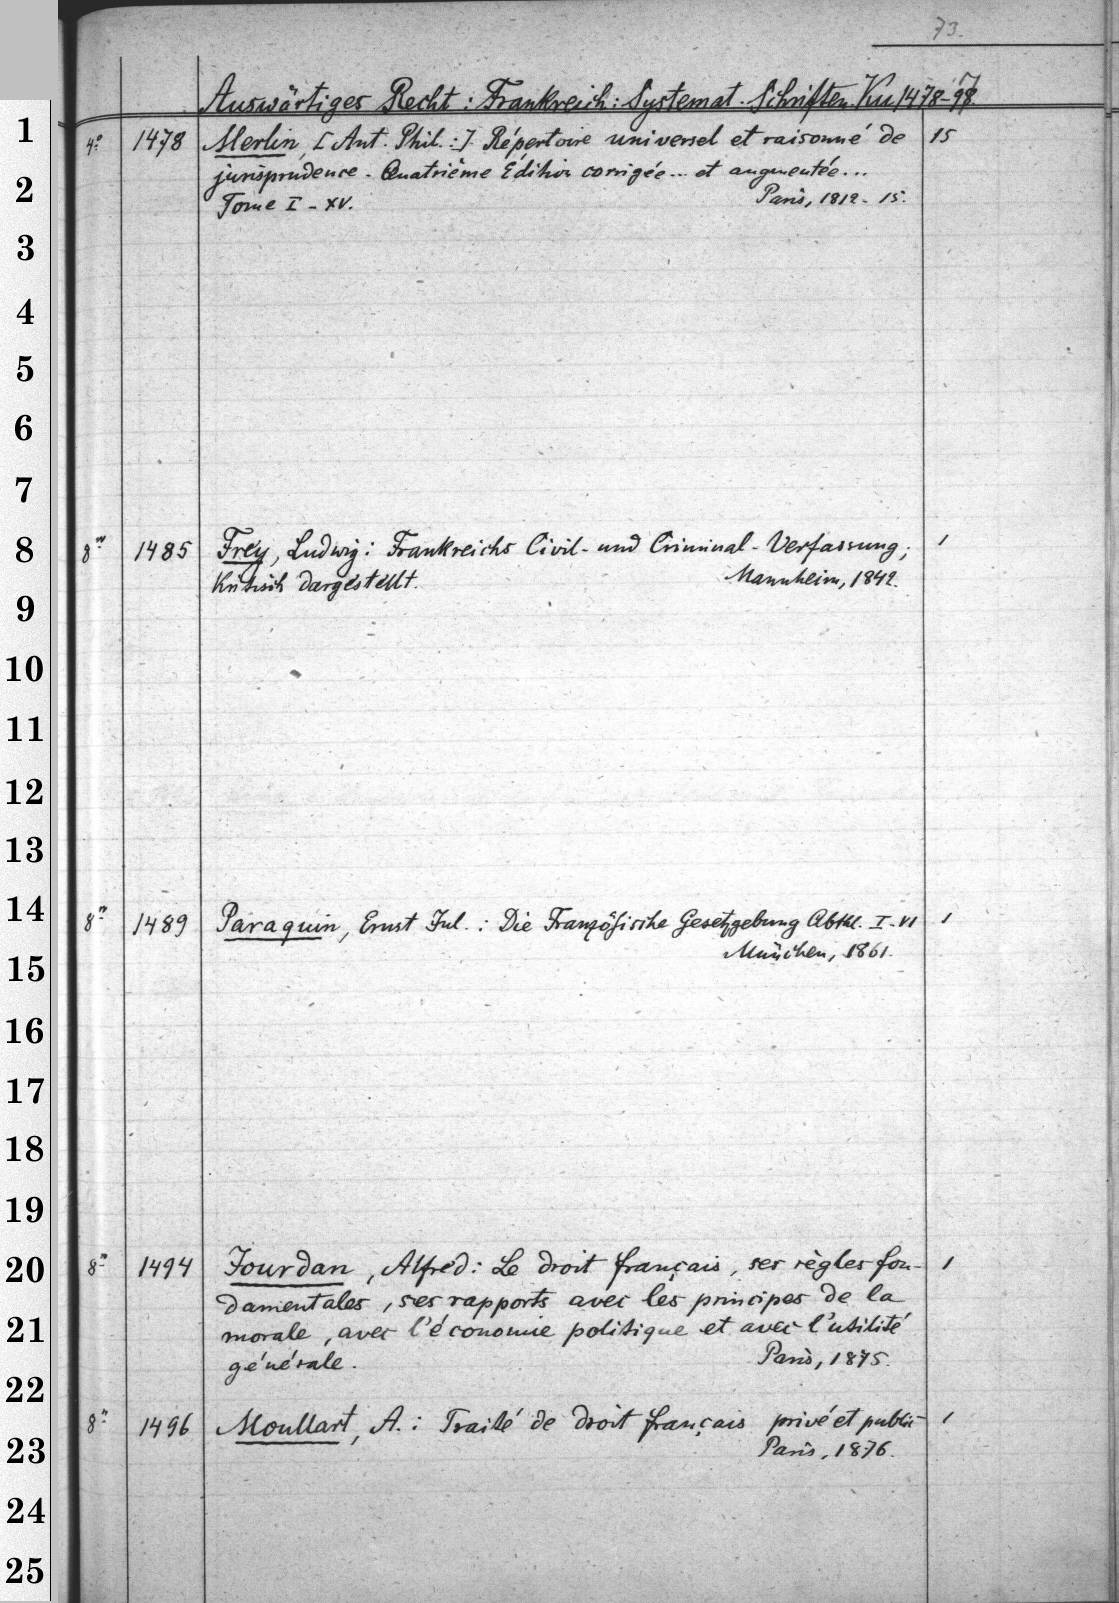 73.
Auswärtiges Recht : Frankreich : Systemat. Schriften. Ku 1478-97
1
4° 1478 Merlin, [Ant. Phil. :] Répertoire universel et raisonné de 15
2
jurisprudence. Quatrième Édition corrigée... et augmentée...
Tome I - XV. Paris, 1812-15.
3
4
5
6
7
8
8° 1485 Frey, Ludwig: Frankreichs Civil- und Criminal-Verfassung; 1
kritisch dargestellt. Mannheim, 1842.
9
10
11
12
13
14
8° 1489 Paraquin, Ernst Jul. : Die Französische Gesetzgebung Abthl. I-VI 1
München, 1861.
15
16
17
18
19
20
8° 1494 Jourdan, Alfred: Le droit français, ses règles fon- 1
damentales, ses rapports avec les principes de la
21
morale, avec l'économie politique et avec l'utilité
générale. Paris, 1875.
22
8° 1496 Moullart, A. : Traité de droit français privé et public 1
23
Paris, 1876.
24
25